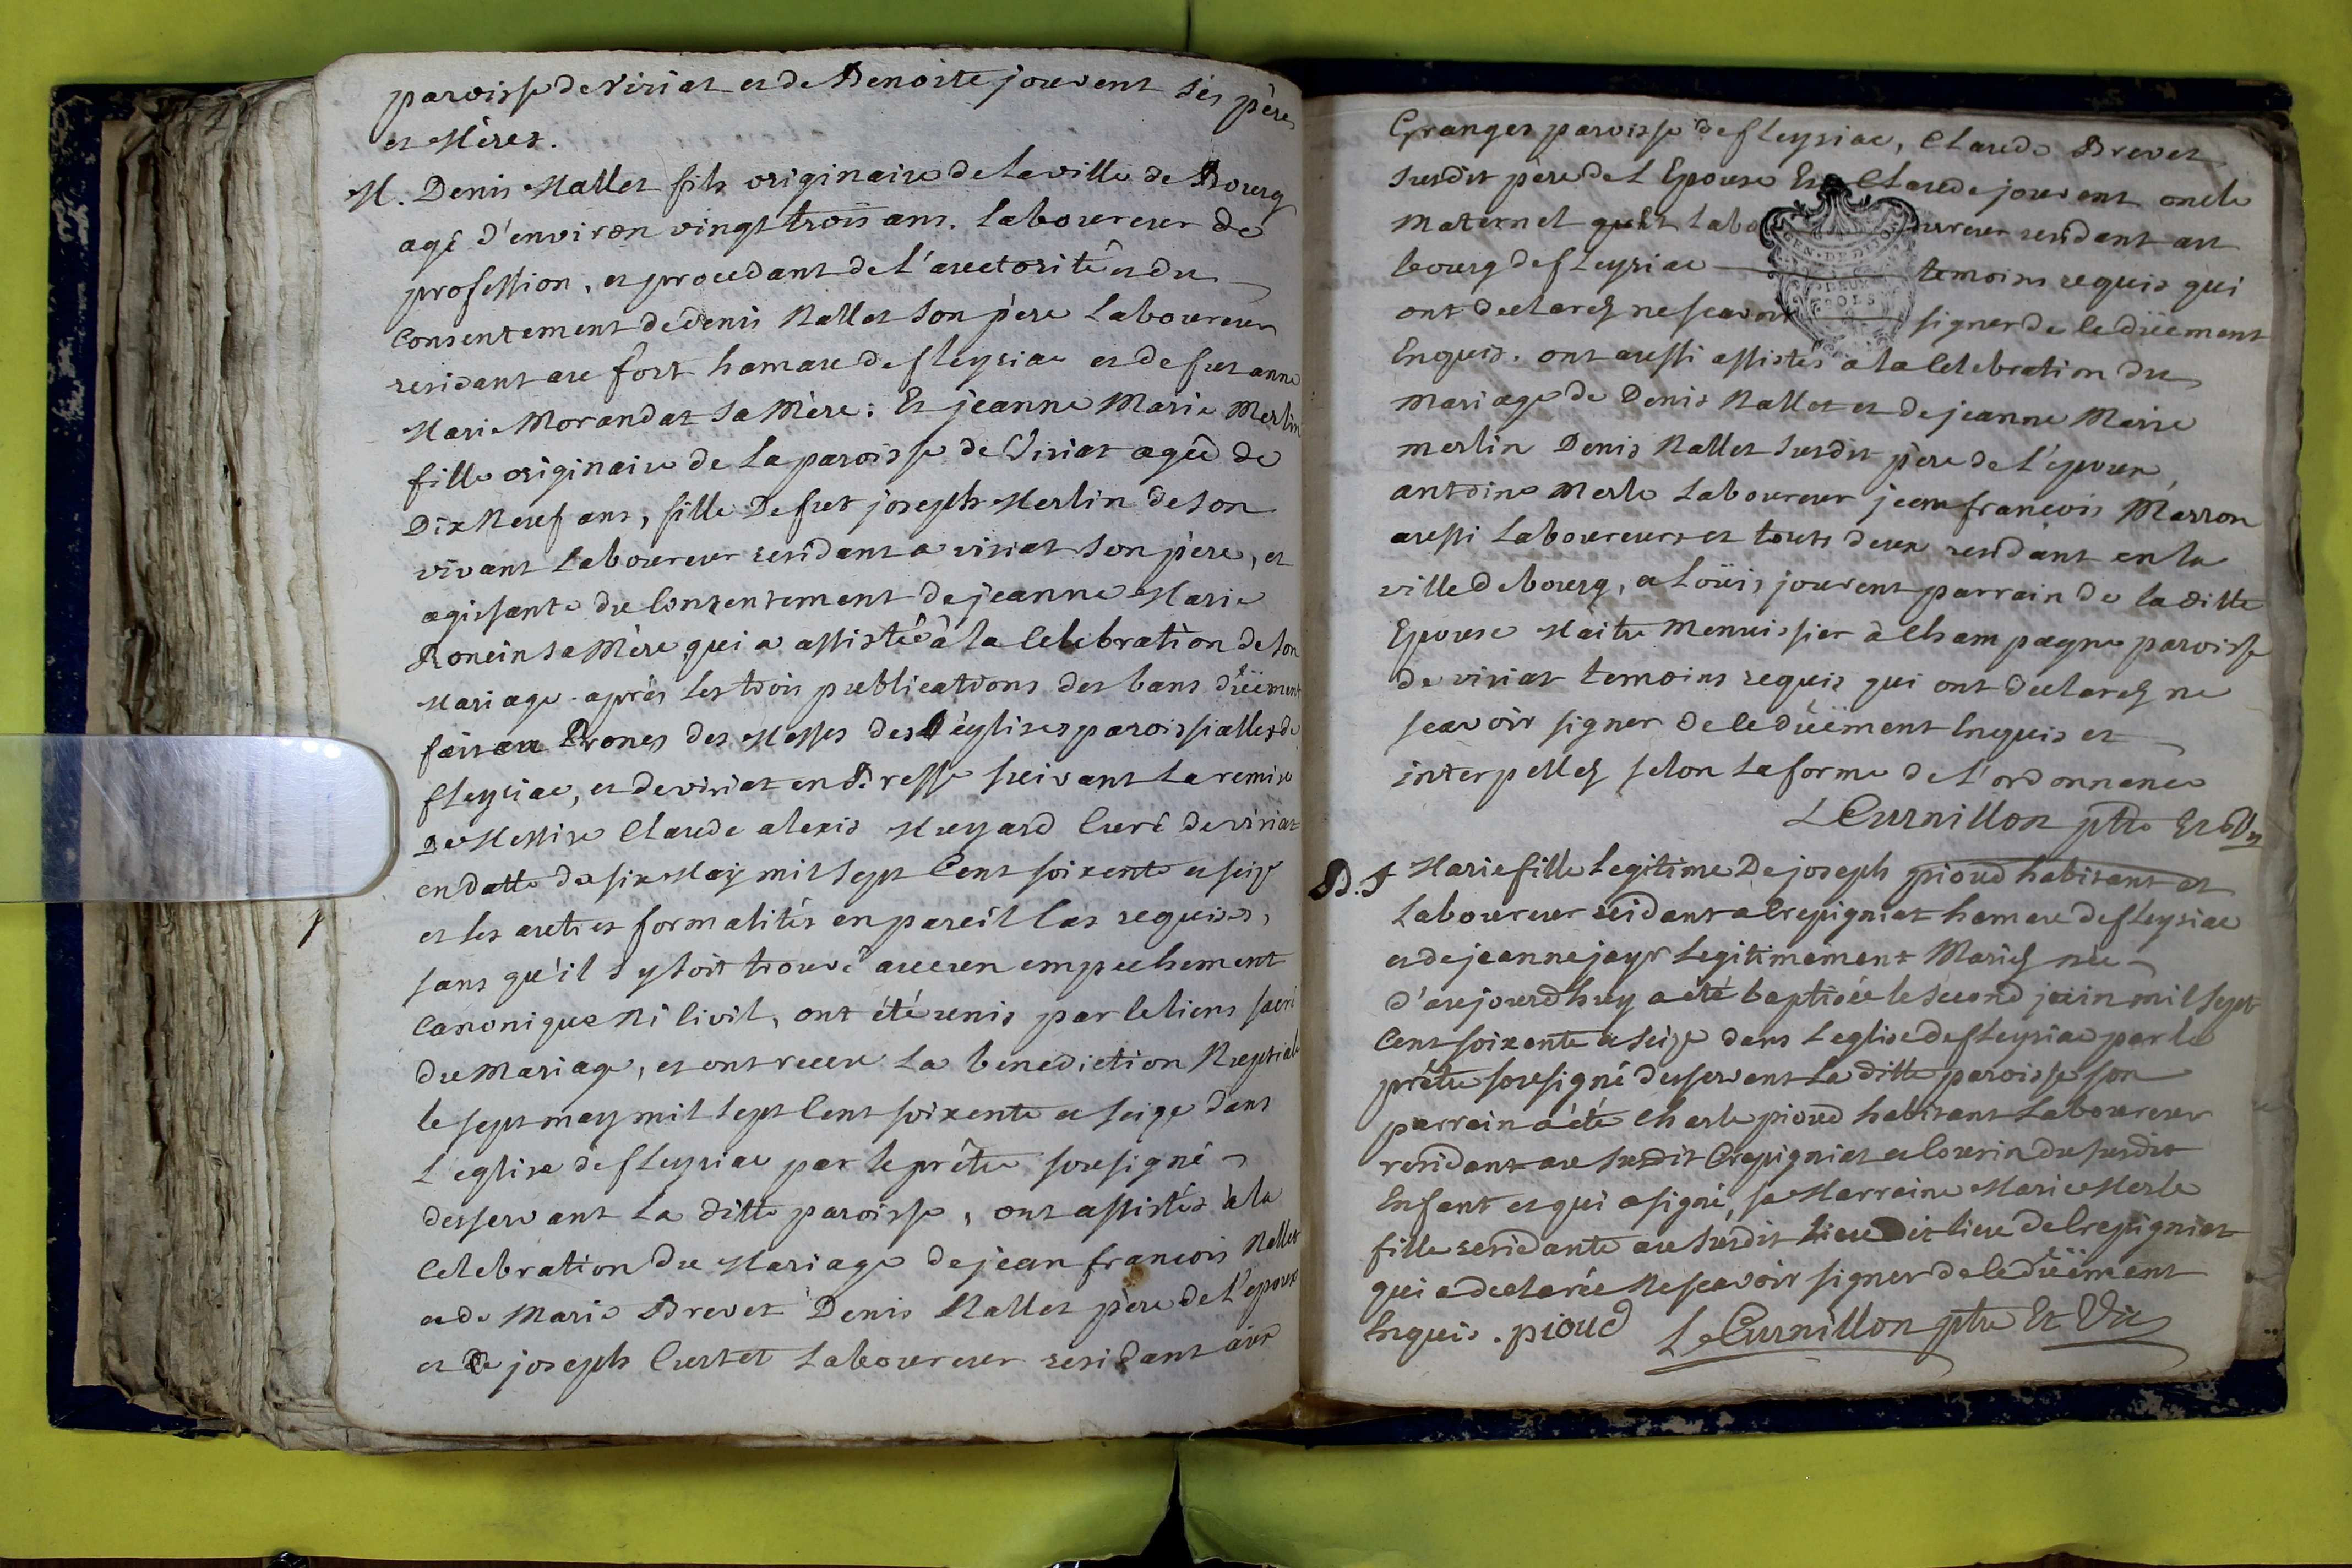 paroisse de Viriat et de Benoite jouvent ses père
et Mères.
M. Denis Nallet fils originaire de la ville de Bourg
agé d'environ vingt trois ans. laboureur de
profession, et procedant de l'auctorité et du
Consentement de denis Nallet son père Laboureur
residant au fort hamau de fleyriac et de fut anne
Marie Morandat sa Mère: Et jeanne Marie Merlin
fille originaire de la paroisse de Viriat agée de
Dix Neuf ans, fille De fut joseph Merlin de son
vivant laboureur residant a viriat son père, et
agissante du Consentement de jeanne Marie
Roncin sa Mère qui a assistée à la Celebration de son
Mariage. après les trois publications des bans düement
fait au Prones des Messes des églises paroissialles de
fleyriac, et de viriat en Bresse suivant la remise
De Messire Claude alexis Muyard Curé de viriat
en datte du six May mil sept Cent soixente et seize
et les autres formalités en pareil Cas requises,
sans qu'il s'y soit trouvé aucun empechement
Canonique Ni Civil, ont été unis par le liens sacré
du Mariage, et ont receu la benediction Nuptiale
le sept may mil sept Cent soixente et seize dans
L'eglise de fleyriac par le prêtre sousigné
desservant la ditte paroisse, ont assistés à la
Celebration du Mariage de jean francois Nallet
et de Marie Brevet Denis Nallet père de l'epoux
et de joseph Curtet Laboureur residant aux
Granges paroisse de fleyriac, Claude Brevet
susdit père de L'Epouse Et Claude jouvent oncle
Maternel qu'est laboureur residant au
bourg de fleyriac temoins requis qui
GEN. DE DIJON
DEUX
SOLS
ont declarez ne scavoir signer de le düement
Enquis. ont aussi assistés a la Celebration du
Mariage de Denis Nallet et de jeanne Marie
merlin Denis Nallet susdit père de l'epoux,
antoine Merle Laboureur jean francois Marron
aussi Laboureurs et touts deux residant en la
ville de bourg, et Loüis jouvent parrain de la ditte
Epouse Maitre Menuissier à Champagne paroisse
de viriat temoins requis qui ont declarez ne
scavoir signer de le düement Enquis et
interpellez selon la forme de l'ordonnence
L Curnillon ptre Et Vic
B. f Marie fille legitime De joseph pioud habitant et
Laboureur residant a Crepigniat hamau de fleyriac
et de jeanne jayr legitimement Mariez née
d'aujourd'huy a été baptisée le second juin mil sept
Cent soixente et seize dans l'eglise de fleyriac par le
prêtre sousigné desservant la ditte paroisse son
parrain a été Charle pioud habitant Laboureur
residant au susdit Crepigniat et Cousin du susdit
Enfant et qui a signé, sa Marraine Marie Merle
fille residante au susdit lieu dit lieu de Crepigniat
qui a declarée Ne scavoir signer de le düement
Enquis. pioud L Curnillon ptre Et Vic